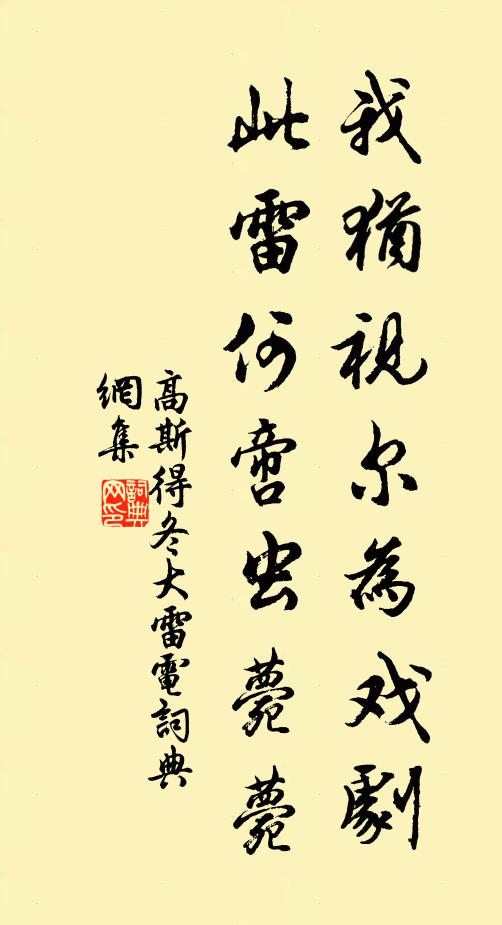 我猶視尔為戏劇
此雷何啻虫薨薨
高斯得冬大雷電詞典
網集
詞典
网印